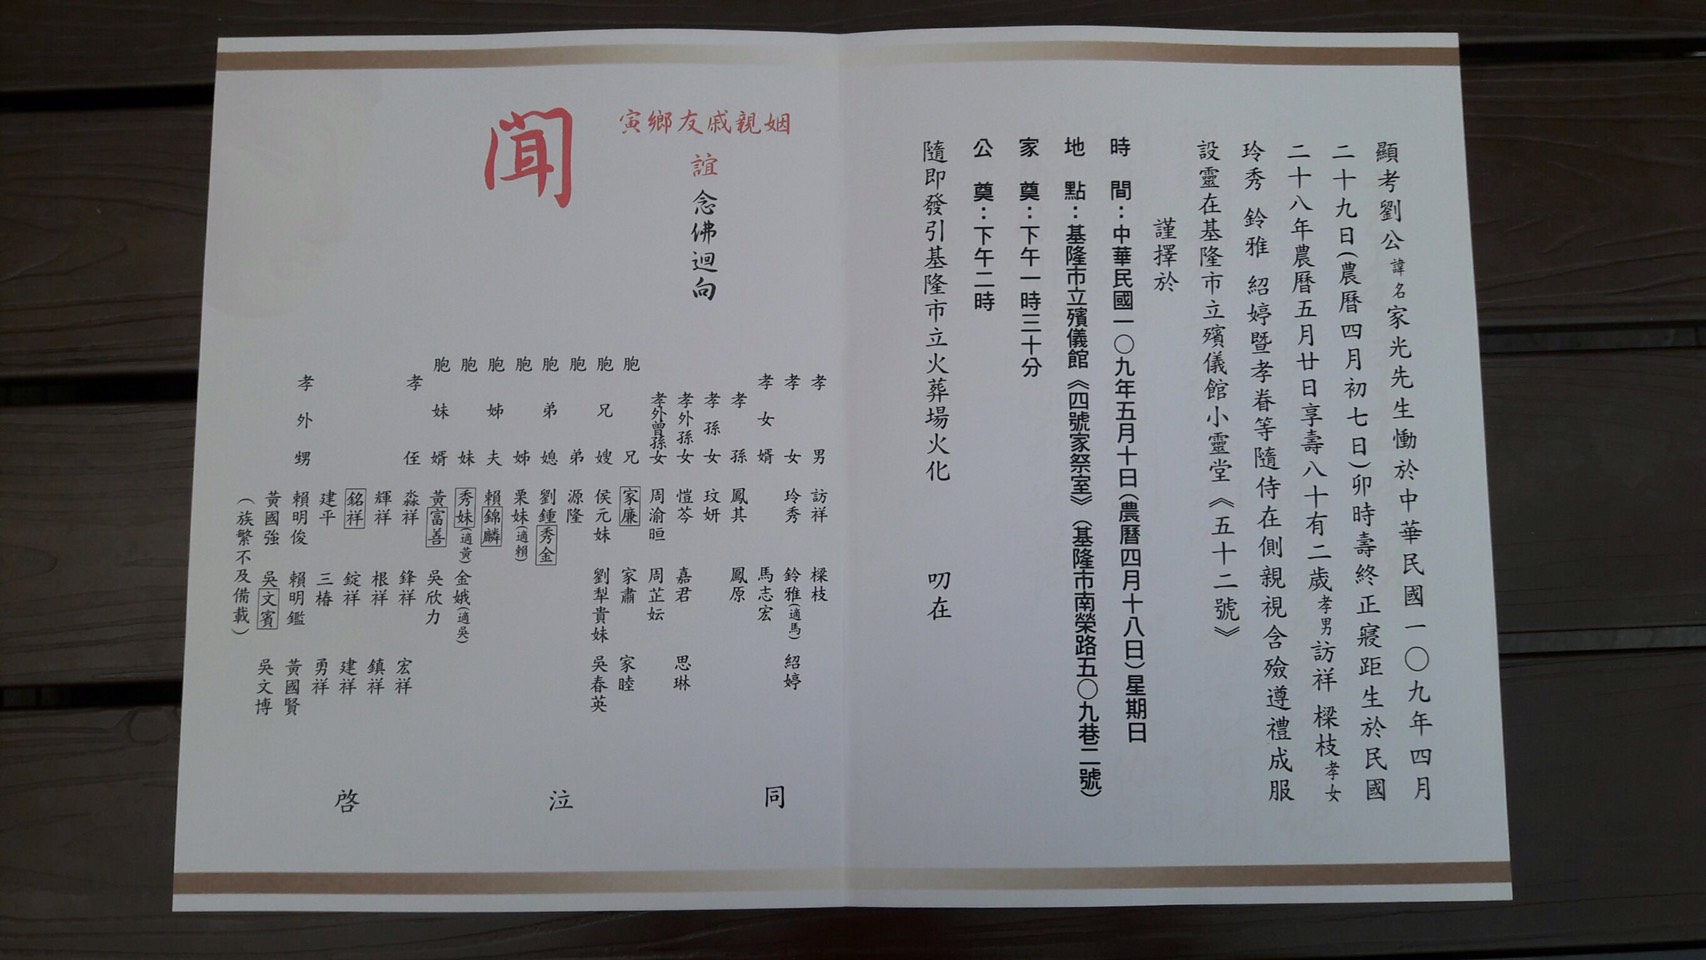 顯考劉公諱名家光先生慟於中華民國一〇九年四月
二十九日(農曆四月初七日)卯時壽終正寢距生於民國
二十八年農曆五月廿日享壽八十有二歲孝男訪祥 樑枝孝女
玲秀 鈴雅 紹婷暨孝眷等隨侍在側親視含殮遵禮成服
設靈在基隆市立殯儀館小靈堂《五十二號》
謹擇於
時 間:中華民國一〇九年五月十日(農曆四月十八日)星期日
地 點:基隆市立殯儀館《四號家祭室》(基隆市南榮路五〇九巷二號)
家 奠:下午一時三十分
公 奠:下午二時
隨即發引基隆市立火葬場火化 叨在
姻親戚友鄉寅
誼 念佛迴向
聞
孝男 訪祥 樑枝
孝女 玲秀 鈴雅(適馬) 紹婷
孝女婿 馬志宏
孝孫 鳳其 鳳原
孝孫女 玟妍
孝外孫女 愷芩 嘉君 思琳
孝外曾孫女 周渝晅 周芷妘
胞兄 家廉 家肅 家睦
胞兄嫂 侯元妹 劉犁貴妹 吳春英
胞弟 源隆
胞弟媳 劉鍾秀金
胞姊 栗妹(適賴)
胞姊夫 賴錦麟
胞妹 秀妹(適黃) 金娥(適吳)
胞妹婿 黃富善 吳欣力
孝侄 淼祥 鋒祥 宏祥
輝祥 根祥 鎮祥
銘祥 錠祥 建祥
建平 三椿 勇祥
孝外甥 賴明俊 賴明鑑 黃國賢
黃國強 吳文賓 吳文博
(族繁不及備載)
同 泣 啓